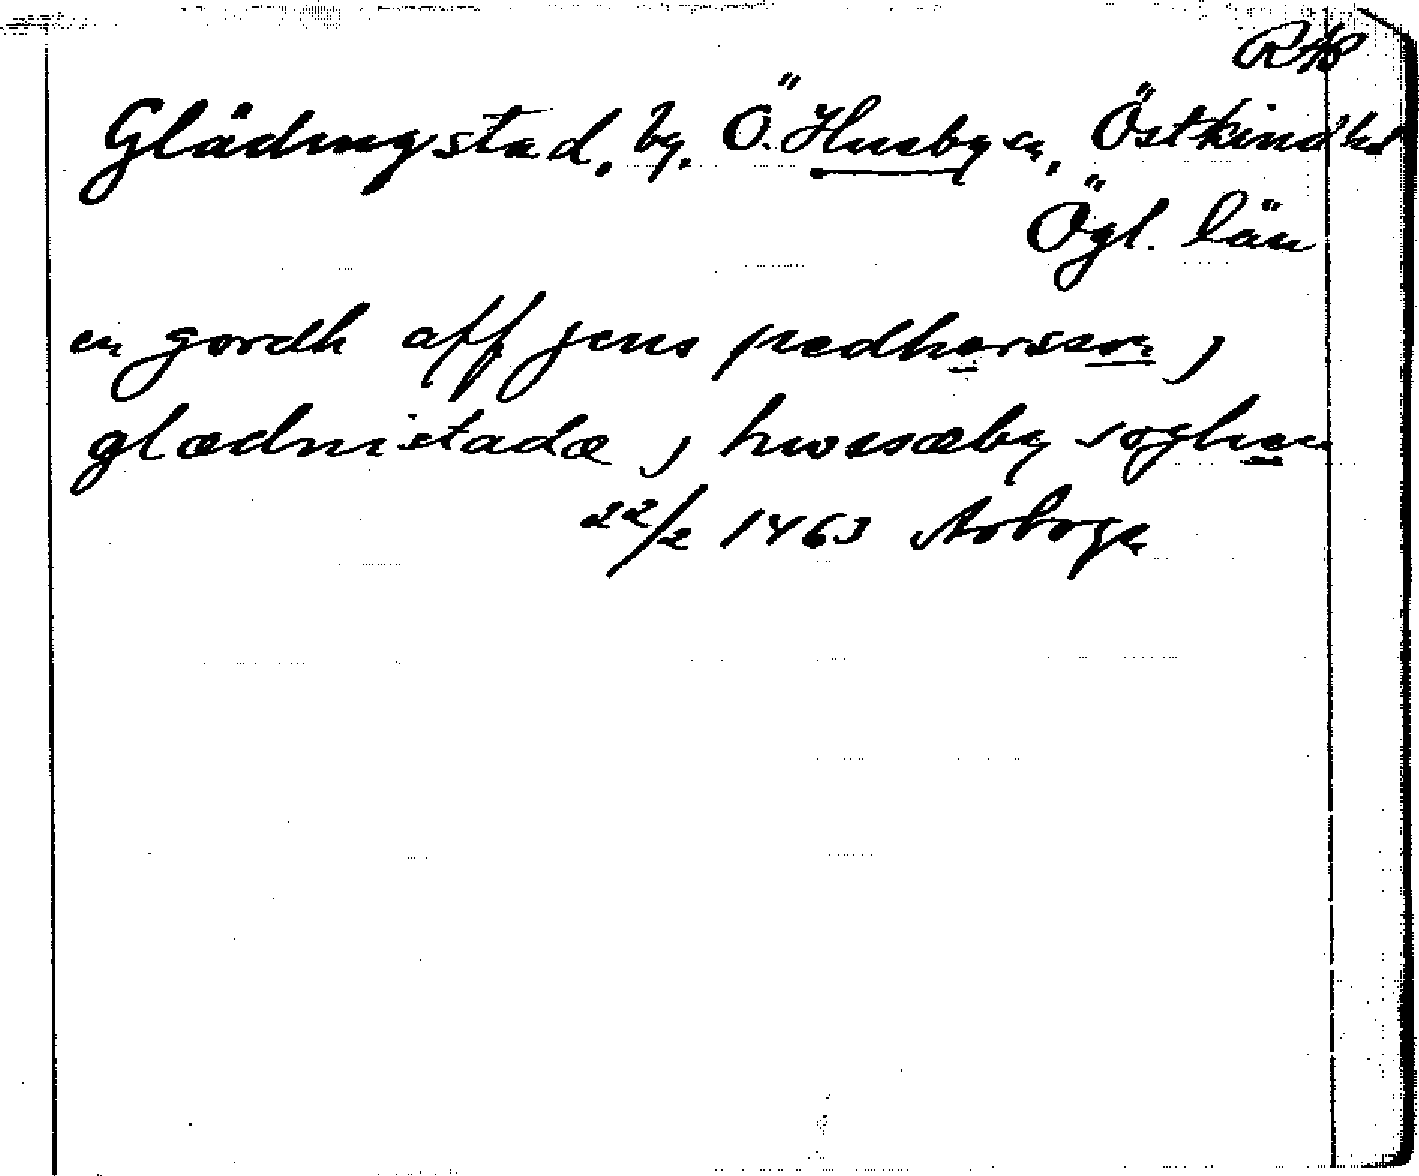 RAP
Glädingstad, by, Ö. Husby sn, Östkind hd
Ögl. län
en gordh aff jens pædhersson j
glædnistadæ j hwsæby soghen
22/2 1463 Arboga